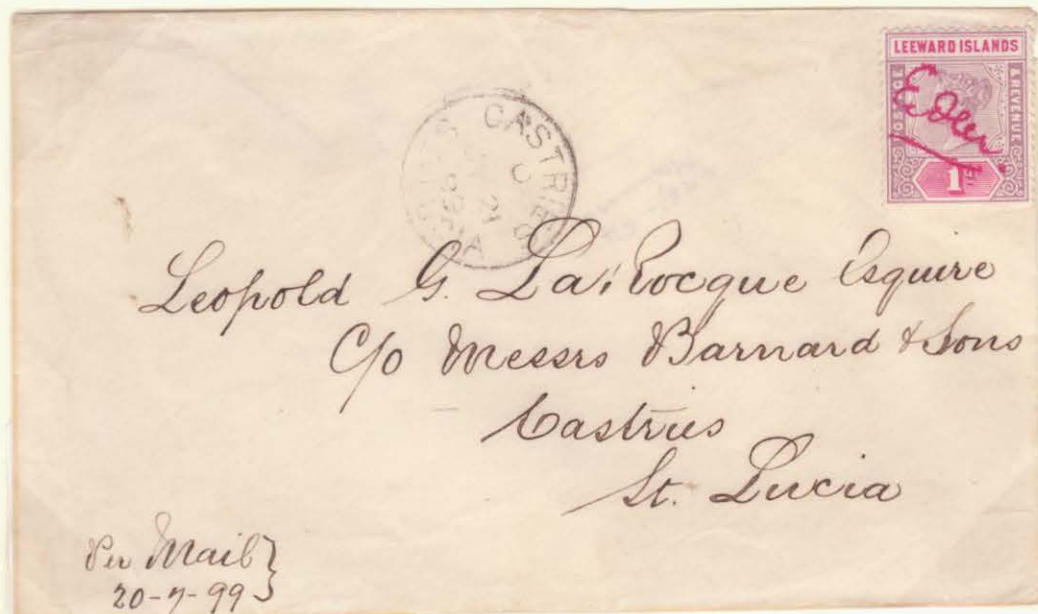 LEEWARD ISLANDS
POSTAGE
& REVENUE
1D.
CASTRIES
Leopold G. La Rocque Esquire
C/o Messrs Barnard & Sons
Castries
St. Lucia
Per Mail }
20-7-99